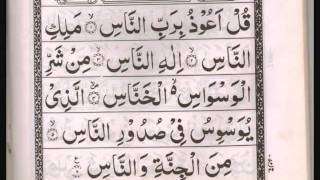 قُلْ اَعُوْذُ بِرَبِّ النَّاسِ ۙ مَلِكِ
النَّاسِ ۙ اِلٰهِ النَّاسِ ۙ مِنْ شَرِّ
الْوَسْوَاسِ ۙ الْخَنَّاسِ ۙ الَّذِیْ
یُوَسْوِسُ فِیْ صُدُوْرِ النَّاسِ ۙ
مِنَ الْجِنَّةِ وَالنَّاسِ